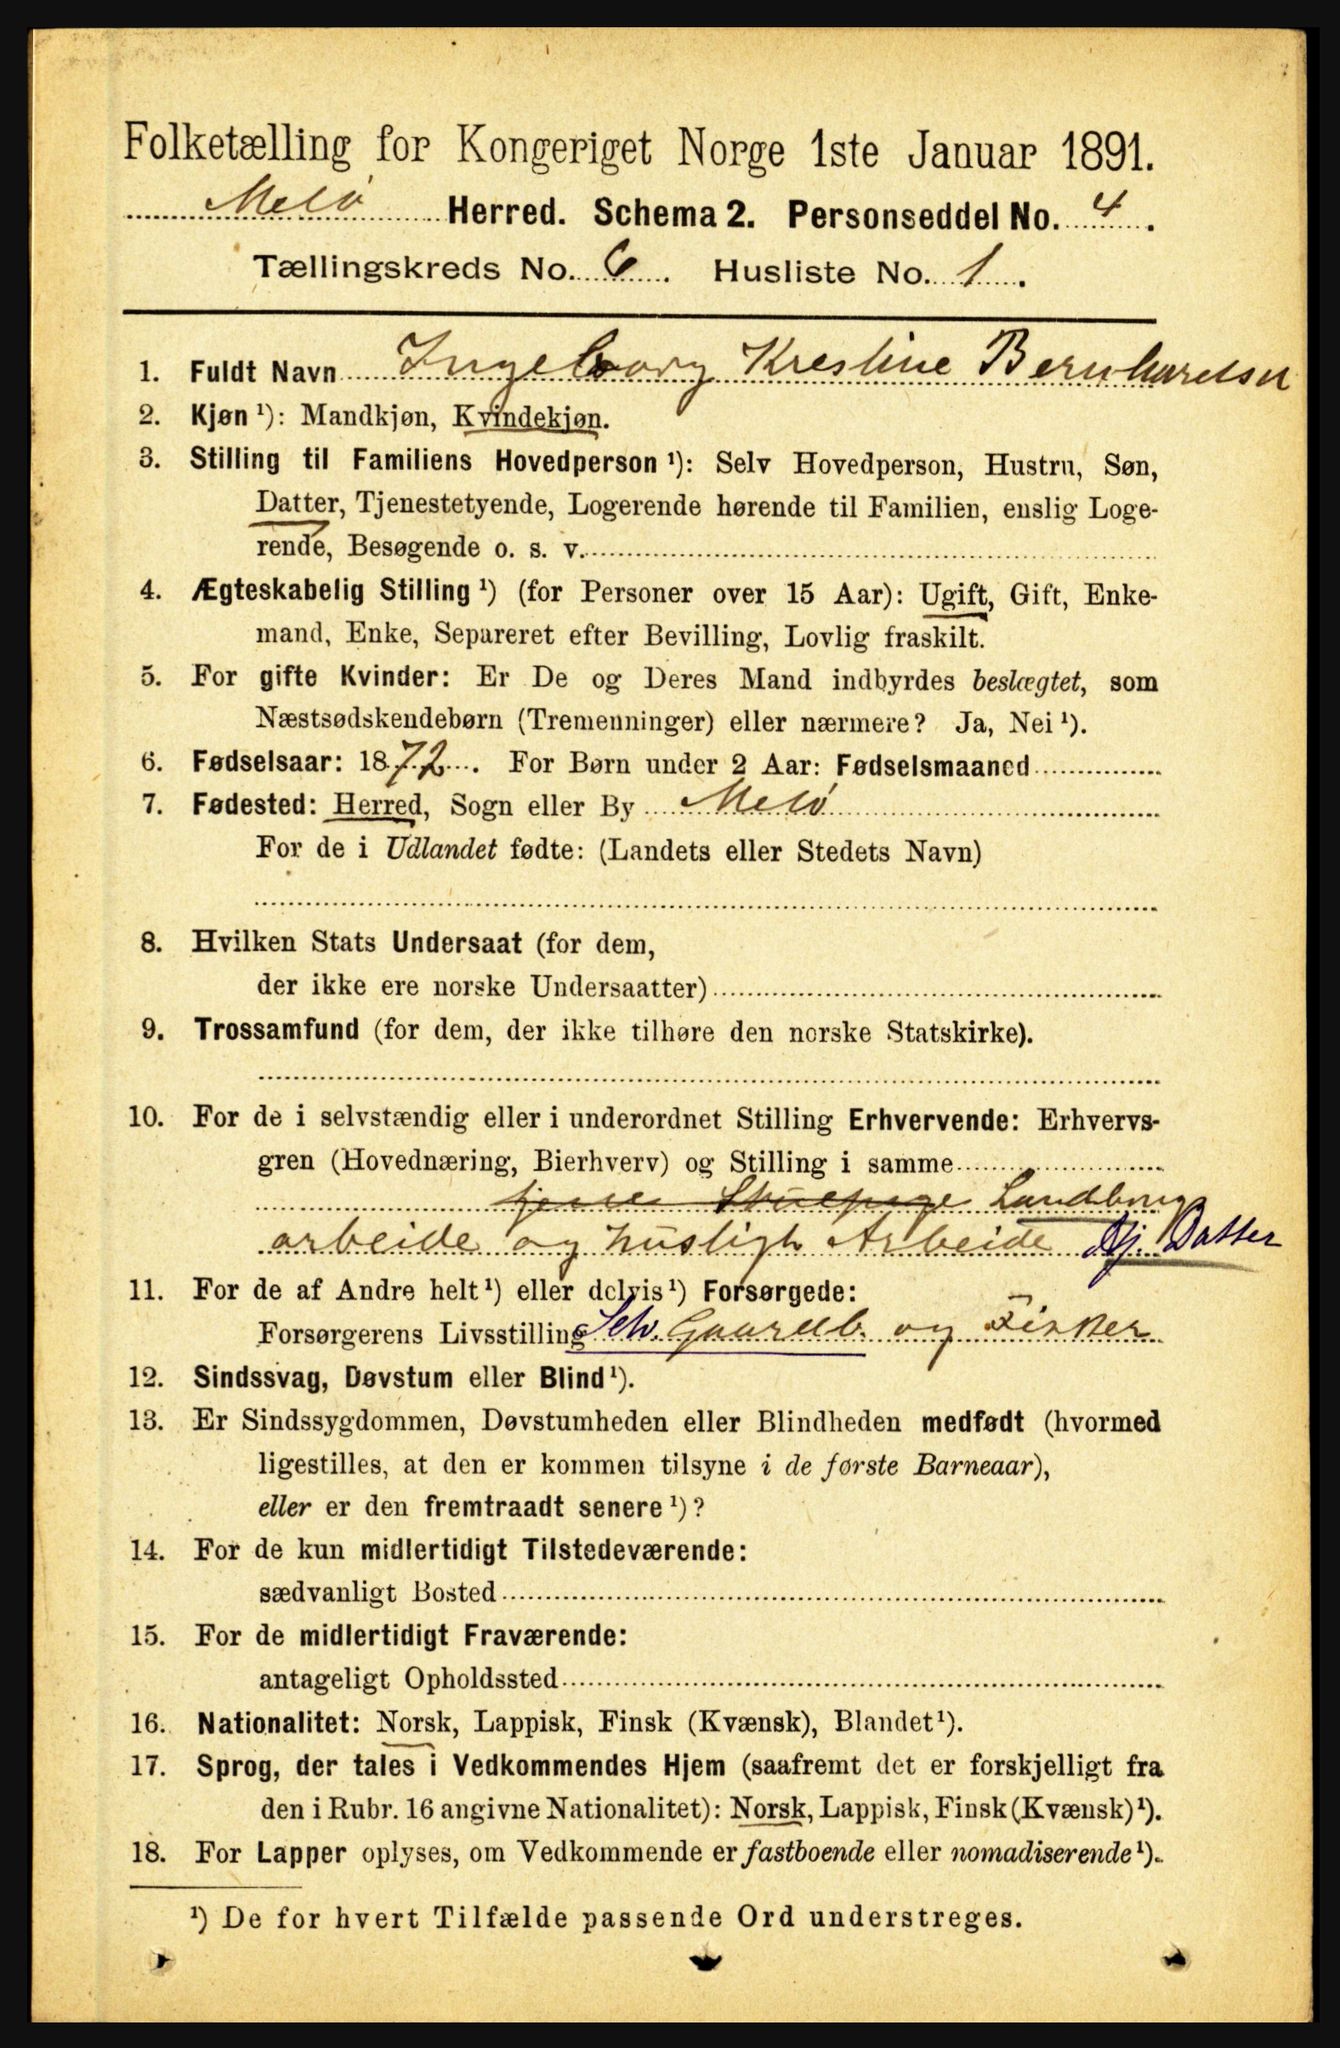 Folketælling for Kongeriget Norge 1ste Januar 1891.
Melö Herred. Schema 2. Personseddel No. 4.
Tællingskreds No. 6. Husliste No. 1.
1. Fuldt Navn Ingeborg Krestine Bernhardsen
2. Kjøn ¹): Mandkjøn, Kvindekjøn.
3. Stilling til Familiens Hovedperson ¹): Selv Hovedperson, Hustru, Søn,
Datter, Tjenestetyende, Logerende hørende til Familien, enslig Loge-
rende, Besøgende o. s. v.
4. Ægteskabelig Stilling ¹) (for Personer over 15 Aar): Ugift, Gift, Enke-
mand, Enke, Separeret efter Bevilling, Lovlig fraskilt.
5. For gifte Kvinder: Er De og Deres Mand indbyrdes beslægtet, som
Næstsødskendebørn (Tremenninger) eller nærmere? Ja, Nei ¹).
6. Fødselsaar: 1872. For Børn under 2 Aar: Fødselsmaaned
7. Fødested: Herred, Sogn eller By Melö
For de i Udlandet fødte: (Landets eller Stedets Navn)
8. Hvilken Stats Undersaat (for dem,
der ikke ere norske Undersaatter)
9. Trossamfund (for dem, der ikke tilhøre den norske Statskirke).
10. For de i selvstændig eller i underordnet Stilling Erhvervende: Erhvervs-
gren (Hovednæring, Bierhverv) og Stilling i samme
Landbrugs
arbeide og husligt Arbeide Hj. Datter
11. For de af Andre helt ¹) eller delvis ¹) Forsørgede:
Forsørgerens Livsstilling Selv. Gaardb. og Fisker
12. Sindssvag, Døvstum eller Blind ¹).
13. Er Sindssygdommen, Døvstumheden eller Blindheden medfødt (hvormed
ligestilles, at den er kommen tilsyne i de første Barneaar),
eller er den fremtraadt senere ¹)?
14. For de kun midlertidigt Tilstedeværende:
sædvanligt Bosted
15. For de midlertidigt Fraværende:
antageligt Opholdssted
16. Nationalitet: Norsk, Lappisk, Finsk (Kvænsk), Blandet ¹).
17. Sprog, der tales i Vedkommendes Hjem (saafremt det er forskjelligt fra
den i Rubr. 16 angivne Nationalitet): Norsk, Lappisk, Finsk (Kvænsk) ¹).
18. For Lapper oplyses, om Vedkommende er fastboende eller nomadiserende ¹).
¹) De for hvert Tilfælde passende Ord understreges.